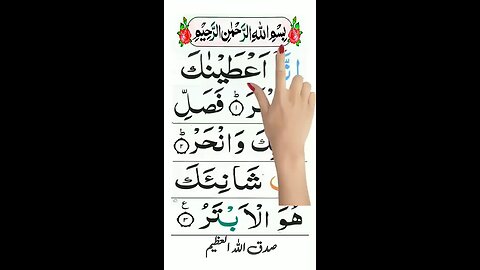 بِسْمِ اللهِ الرَّحْمٰنِ الرَّحِيْمِ
اِنَّاۤ اَعْطَيْنٰكَ
فَصَلِّ
وَانْحَرْ ؕ ﴿۲﴾
شَانِئَكَ
هُوَ الْاَبْتَرُ ﴿۳﴾ ع
صدق اللہ العظیم